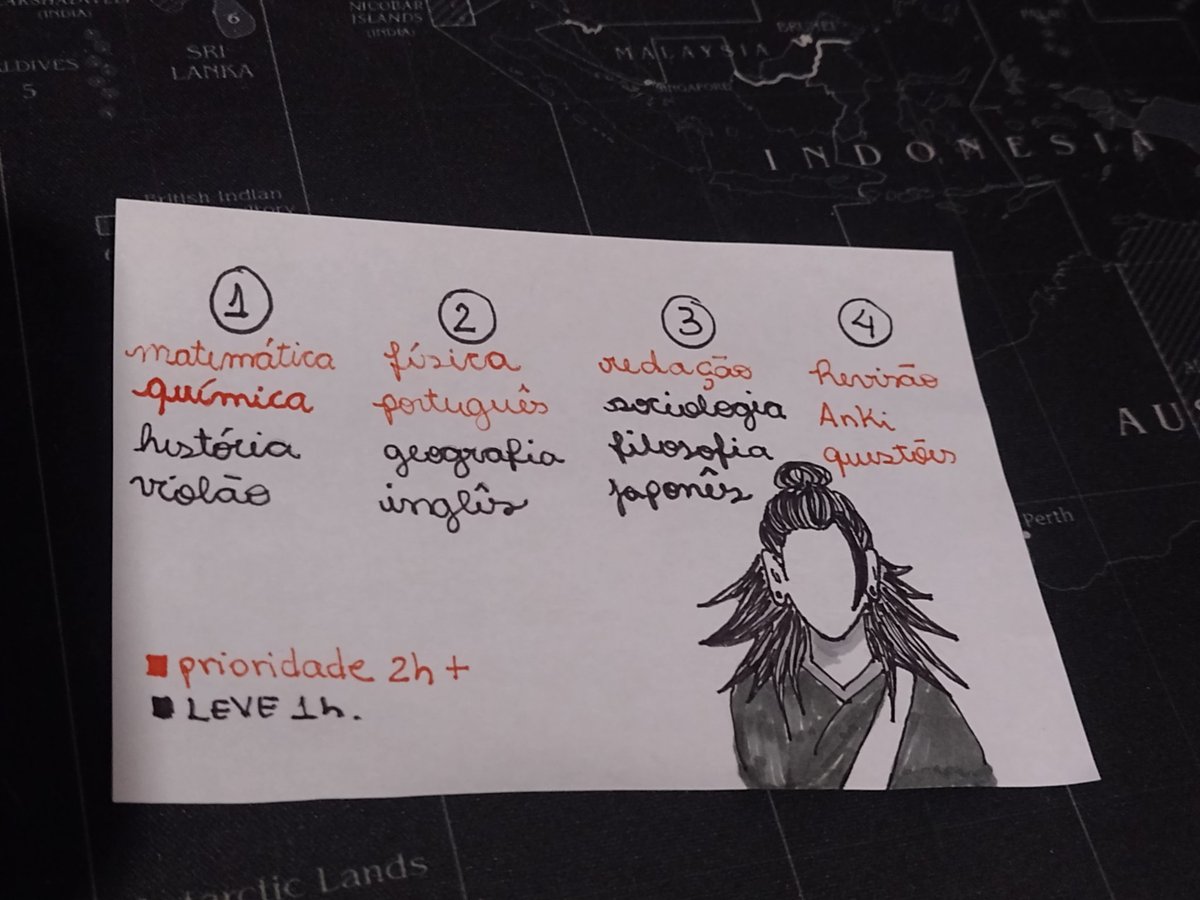 (INDIA)
6
SRI
LANKA
5
NICOBAR
ISLANDS
(INDIA)
MALAYSIA
SINGAPORE
INDONESIA
British Indian
AU
Perth
1
matemática
química
história
violão
2
física
português
geografia
inglês
3
redação
sociologia
filosofia
japonês
4
Revisão
Anki
questões
■ prioridade 2h +
■ LEVE 1h.
Lands